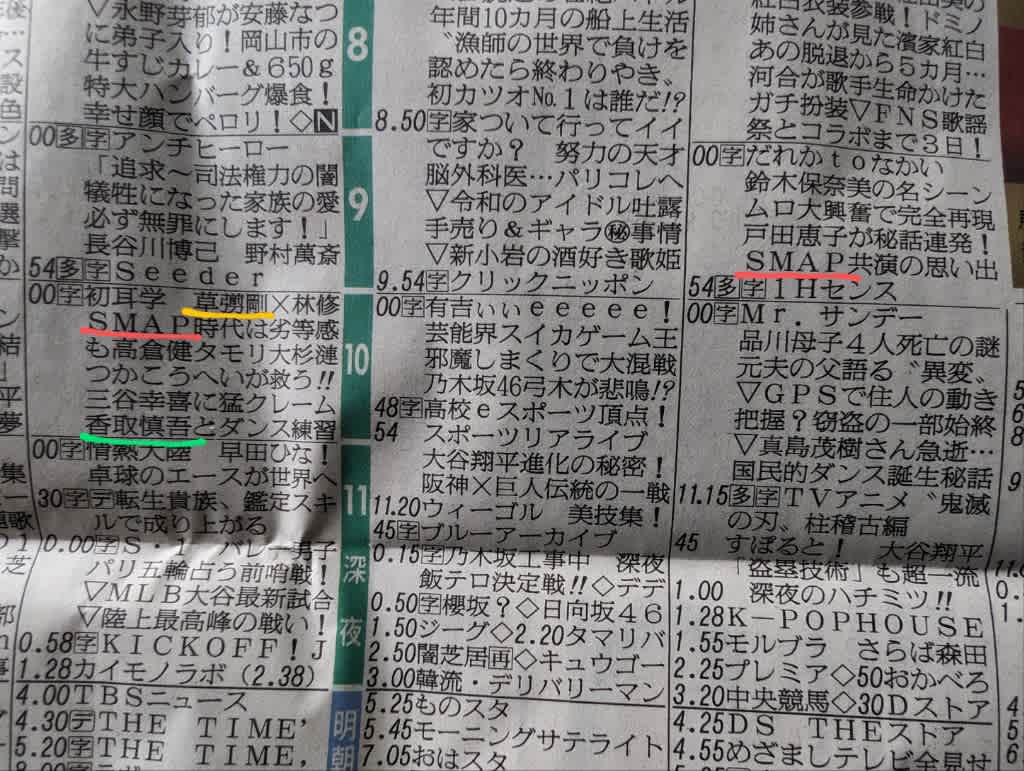 ▽永野芽郁が安藤なつ
に弟子入り！岡山市の
牛すじカレー＆650g
特大ハンバーグ爆食！
幸せ顔でペロリ！◇N
00多字アンチヒーロー
「追求～司法権力の闇
犠牲になった家族の愛
必ず無罪にします！」
長谷川博己　野村萬斎
54多字Ｓｅｅｄｅｒ
00字初耳学　草彅剛×林修
ＳＭＡＰ時代は劣等感
も高倉健タモリ大杉漣
つかこうへいが救う!!
三谷幸喜に猛クレーム
香取慎吾とダンス練習
00字情熱大陸　早田ひな！
卓球のエースが世界へ
30字デ転生貴族、鑑定スキ
ルで成り上がる
0.00字Ｓ・１　バレー男子
パリ五輪占う前哨戦！
▽ＭＬＢ大谷最新試合
▽陸上最高峰の戦い！
0.58字ＫＩＣＫＯＦＦ！Ｊ
1.28カイモノラボ（2.38）
4.00ＴＢＳニュース
4.30デＴＨＥ　ＴＩＭＥ’
5.20字ＴＨＥ　ＴＩＭＥ，
8
9
10
11
深
夜
明
朝
年間10カ月の船上生活
〝漁師の世界で負けを
認めたら終わりやき〟
初カツオNo.１は誰だ!?
8.50字家ついて行ってイイ
ですか？　努力の天才
脳外科医…パリコレへ
▽令和のアイドル吐露
手売り＆ギャラ㊙事情
▽新小岩の酒好き歌姫
9.54字クリックニッポン
00字有吉ぃぃｅｅｅｅｅ！
芸能界スイカゲーム王
邪魔しまくりで大混戦
乃木坂46弓木が悲鳴!?
48字高校ｅスポーツ頂点！
54　スポーツリアライブ
大谷翔平進化の秘密！
阪神×巨人伝統の一戦
11.20ウィーゴル　美技集！
45字ブルーアーカイブ
0.15字乃木坂工事中　深夜
飯テロ決定戦!!◇デデ
0.50字櫻坂？◇日向坂４６
1.50ジーグ◇2.20タマリバ
2.50闇芝居再◇キュウゴー
3.00韓流・デリバリーマン
5.25ものスタ
5.45モーニングサテライト
7.05おはスタ
紅白衣装参戦！ドミノ
姉さんが見た濱家紅白
あの脱退から５カ月…
河合が歌手生命かけた
ガチ扮装▽ＦＮＳ歌謡
祭とコラボまで３日！
00字だれかｔｏなかい
鈴木保奈美の名シーン
ムロ大興奮で完全再現
戸田恵子が秘話連発！
ＳＭＡＰ共演の思い出
54多字１Ｈセンス
00字Ｍｒ．サンデー
品川母子４人死亡の謎
元夫の父語る〝異変〟
▽ＧＰＳで住人の動き
把握？窃盗の一部始終
▽真島茂樹さん急逝…
国民的ダンス誕生秘話
11.15多字ＴＶアニメ〝鬼滅
の刃〟柱稽古編
45　すぽると！　大谷翔平
「盗塁技術」も超一流
1.00　深夜のハチミツ!!
1.28Ｋ－ＰＯＰＨＯＵＳＥ
1.55モルブラ　さらば森田
2.25プレミア◇50おかべろ
3.20中央競馬◇30Ｄストア
4.25ＤＳ　ＴＨＥストア
4.55めざましテレビ全見せ